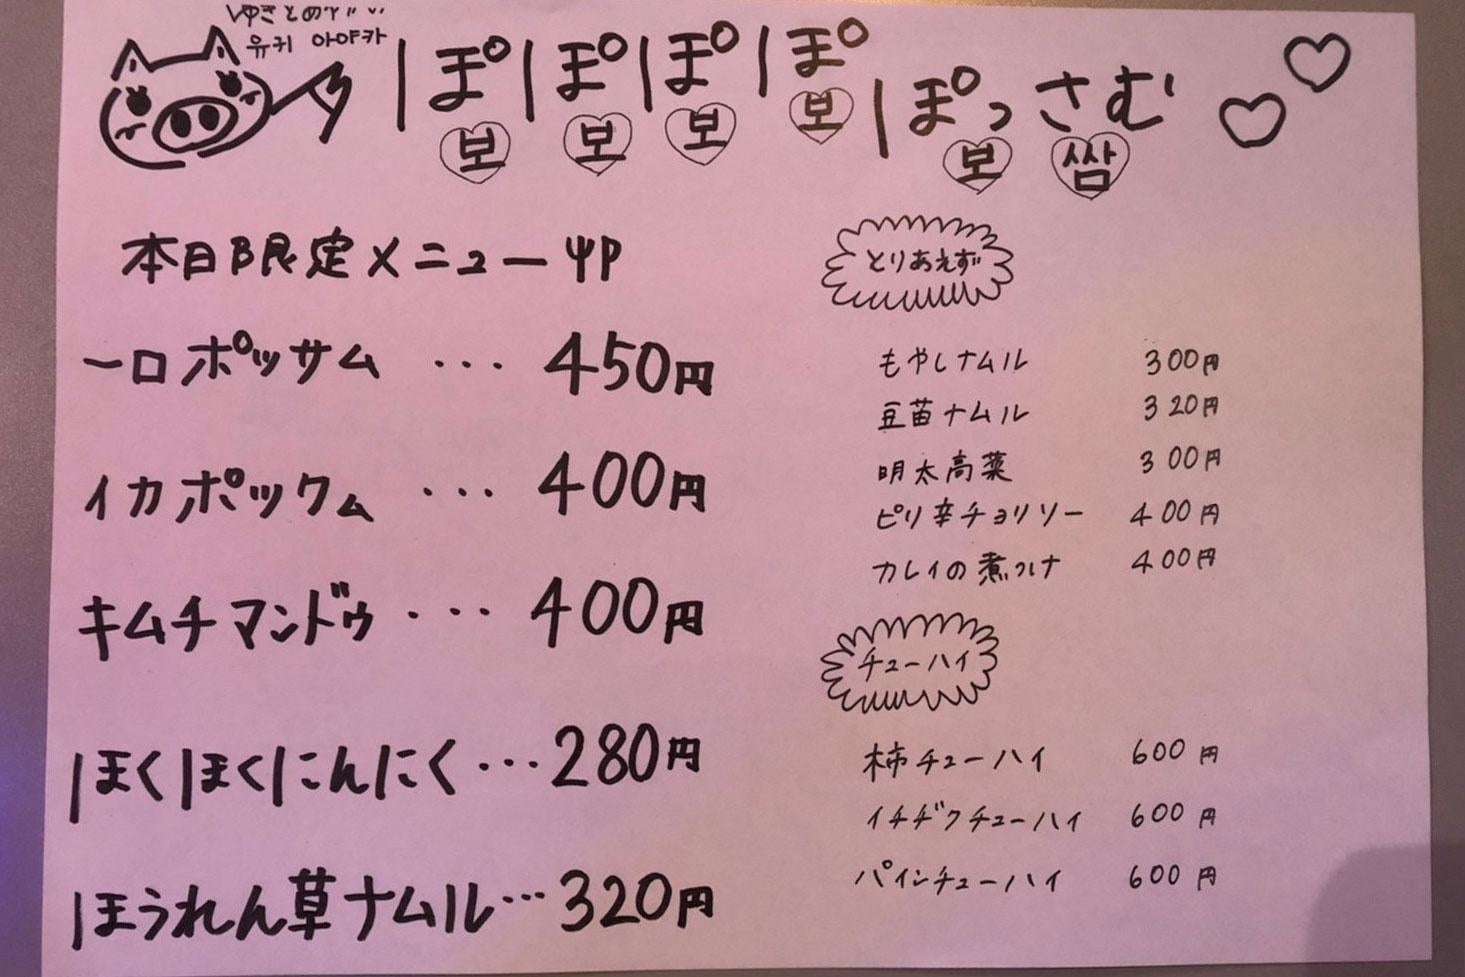 유키 아야카
ぽぽぽぽぽっさむ
보 보 보 보 보 쌈
本日限定メニュー
一口ポッサム ... 450円
イカポックム ... 400円
キムチマンドゥ ... 400円
ほくほくにんにく ... 280円
ほうれん草ナムル ... 320円
とりあえず
もやしナムル 300円
豆苗ナムル 320円
明太高菜 300円
ピリ辛チョリソー 400円
カレイの煮つけ 400円
チューハイ
柿チューハイ 600円
イチヂクチューハイ 600円
パインチューハイ 600円